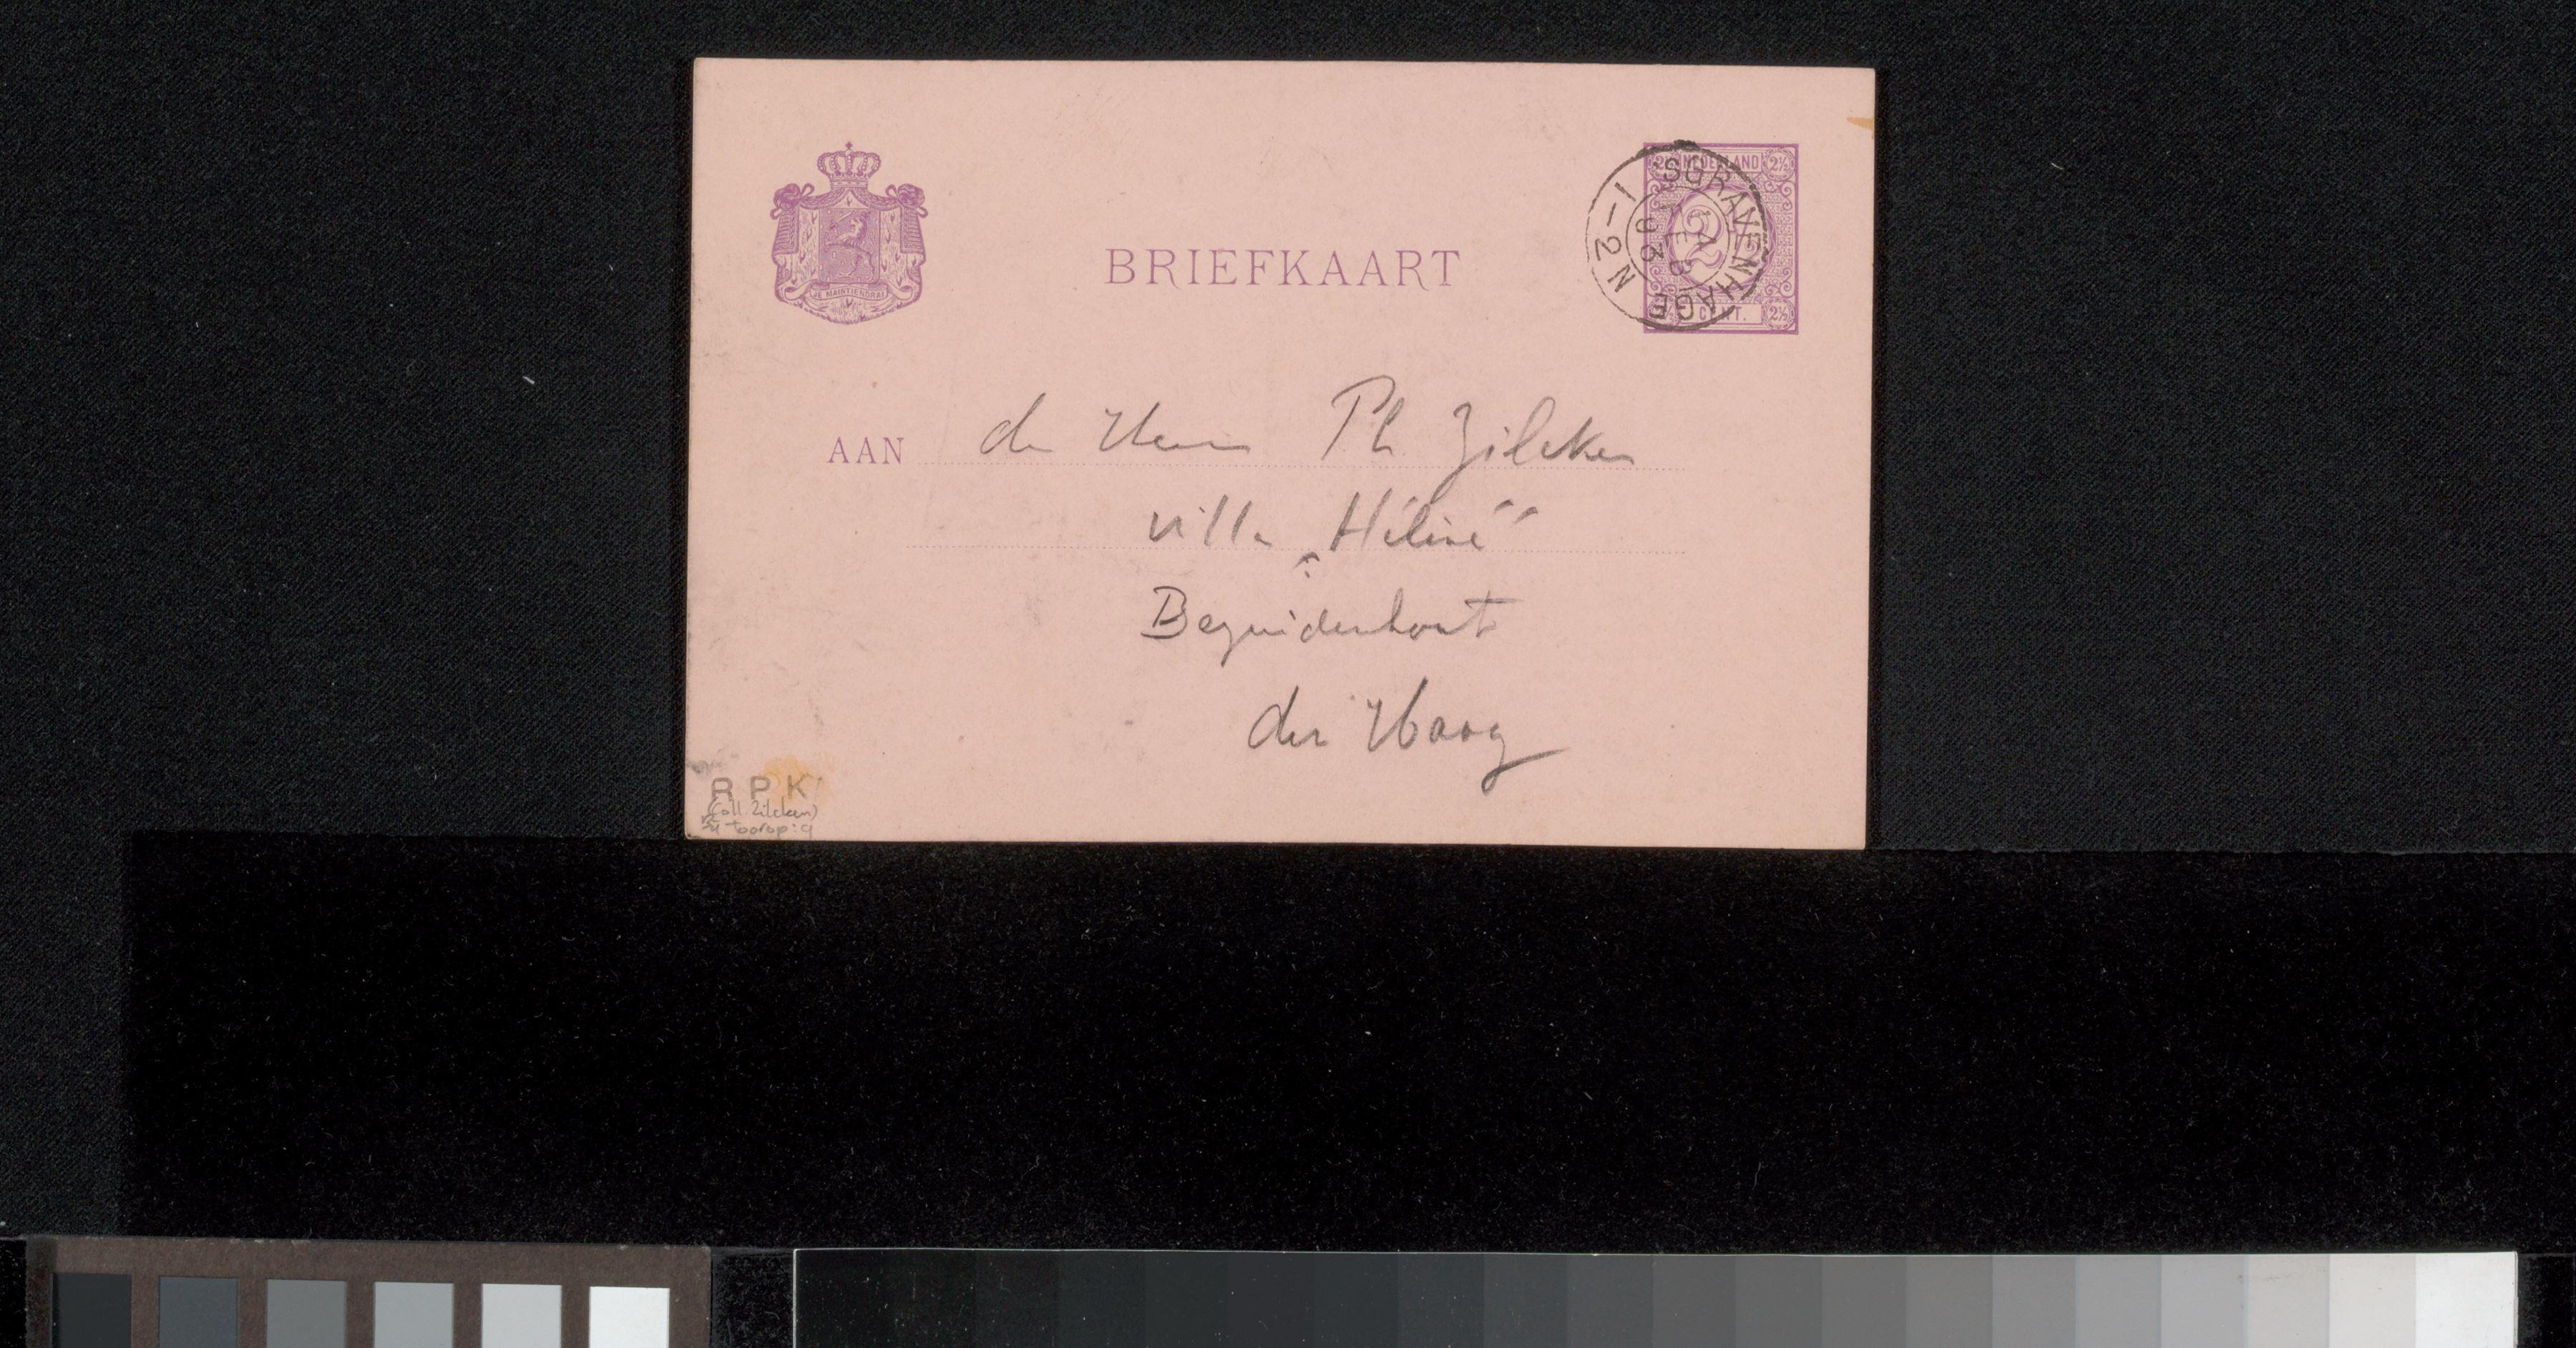 BRIEFKAART
JE MAINTIENDRAI
NEDERLAND
2½ 2½
CENT. 2½
'SGRAVENHAGE
FEB
93
N 2-1
AAN den Heer Ph Zilcken
villa „Hélène"
Bezuidenhout
den Haag
RPK
(coll. Zilcken)
toorop: 9